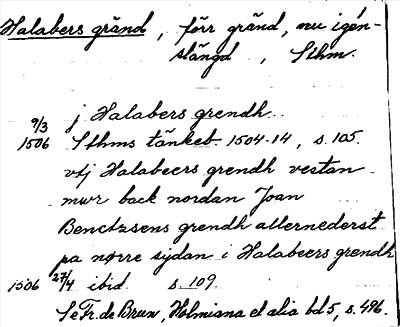 Halabers gränd, förr gränd, nu igen-
stängd, Sthm.
j Halabers grendh.
9/3 1506 Sthms tänkeb. 1504-14, s. 105.
vtj Halabeers grendh vestan
mwr back nordan Joan
Benctzsens grendh allernederst
pa nørre sydan i Halabeers grendh
1506 27/4 ibid. s. 109.
Se Fr. de Brun, Holmiana et alia bd 5, s. 496.